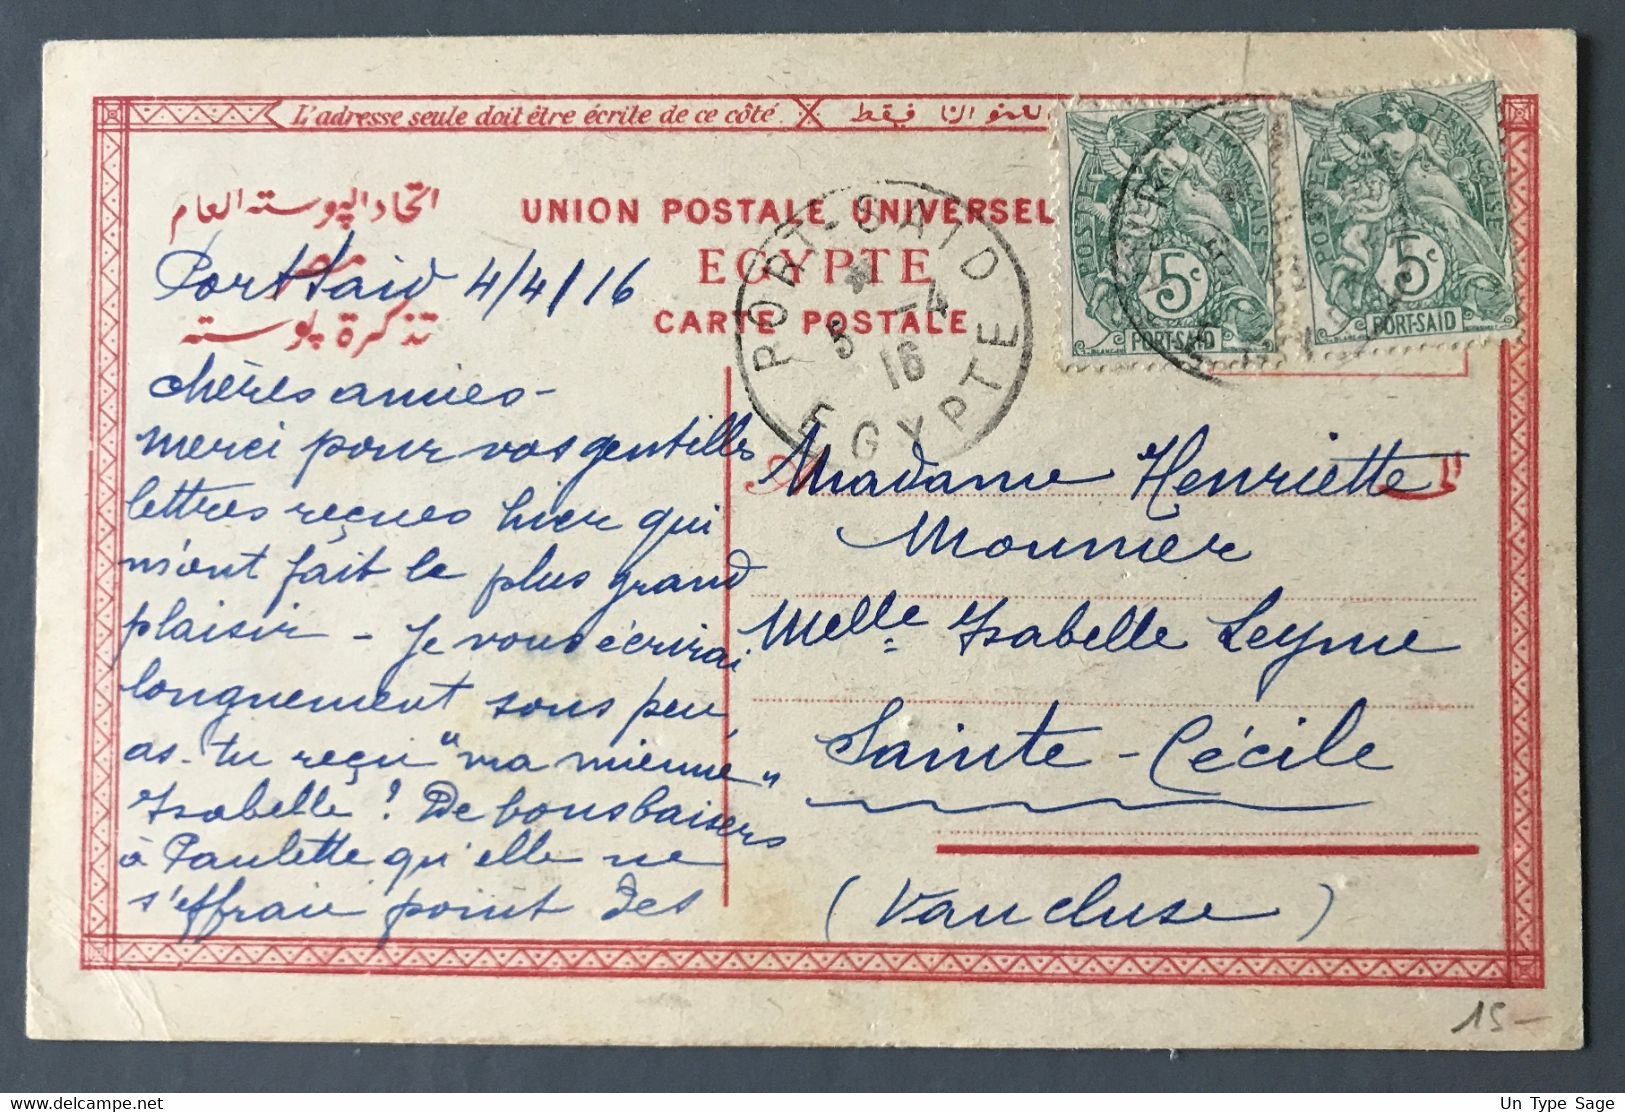 L'adresse seule doit être écrite de ce côté.
اتحاد البوسته العام
UNION POSTALE UNIVERSEL
مصر
EGYPTE
تذكرة بوسته
CARTE POSTALE
PORT-SAID
5 -4
16
EGYPTE
POSTE FRANÇAISE
5c
PORT-SAID
POSTE FRANÇAISE
5c
PORT-SAID
Port Said 4/4/16
Chères amies -
merci pour vos gentilles
lettres reçues hier qui
m'ont fait le plus grand
plaisir - Je vous écrirai
longuement sous peu,
as-tu reçu "la mienne"
Isabelle? De bons baisers
à Paulette qu'elle ne
s'effraie point des
Madame Henriette
Mounier
Melle Isabelle Leyne
Sainte-Cécile
(Vaucluse)
15-
delcampe.net
Un Type Sage